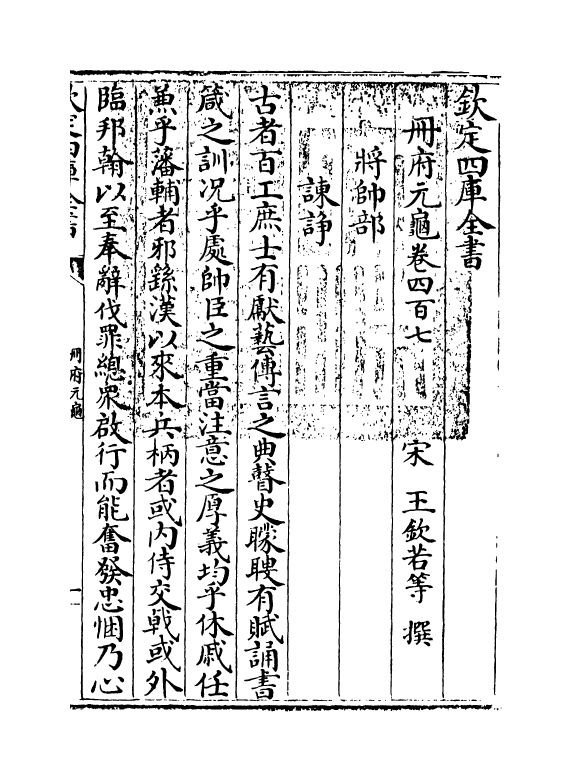 欽定四庫全書
冊府元龜卷四百七
宋 王欽若等 撰
將帥部
諫諍
古者百工庶士有獻藝傳言之典瞽史矇瞍有賦誦書
箴之訓况乎處帥臣之重當注意之厚義均乎休戚任
兼乎藩輔者邪繇漢以來本兵柄者或内侍交戟或外
臨邦翰以至奉辭伐罪總衆啟行而能奮發忠悃乃心
欽定四庫全書
冊府元龜
一